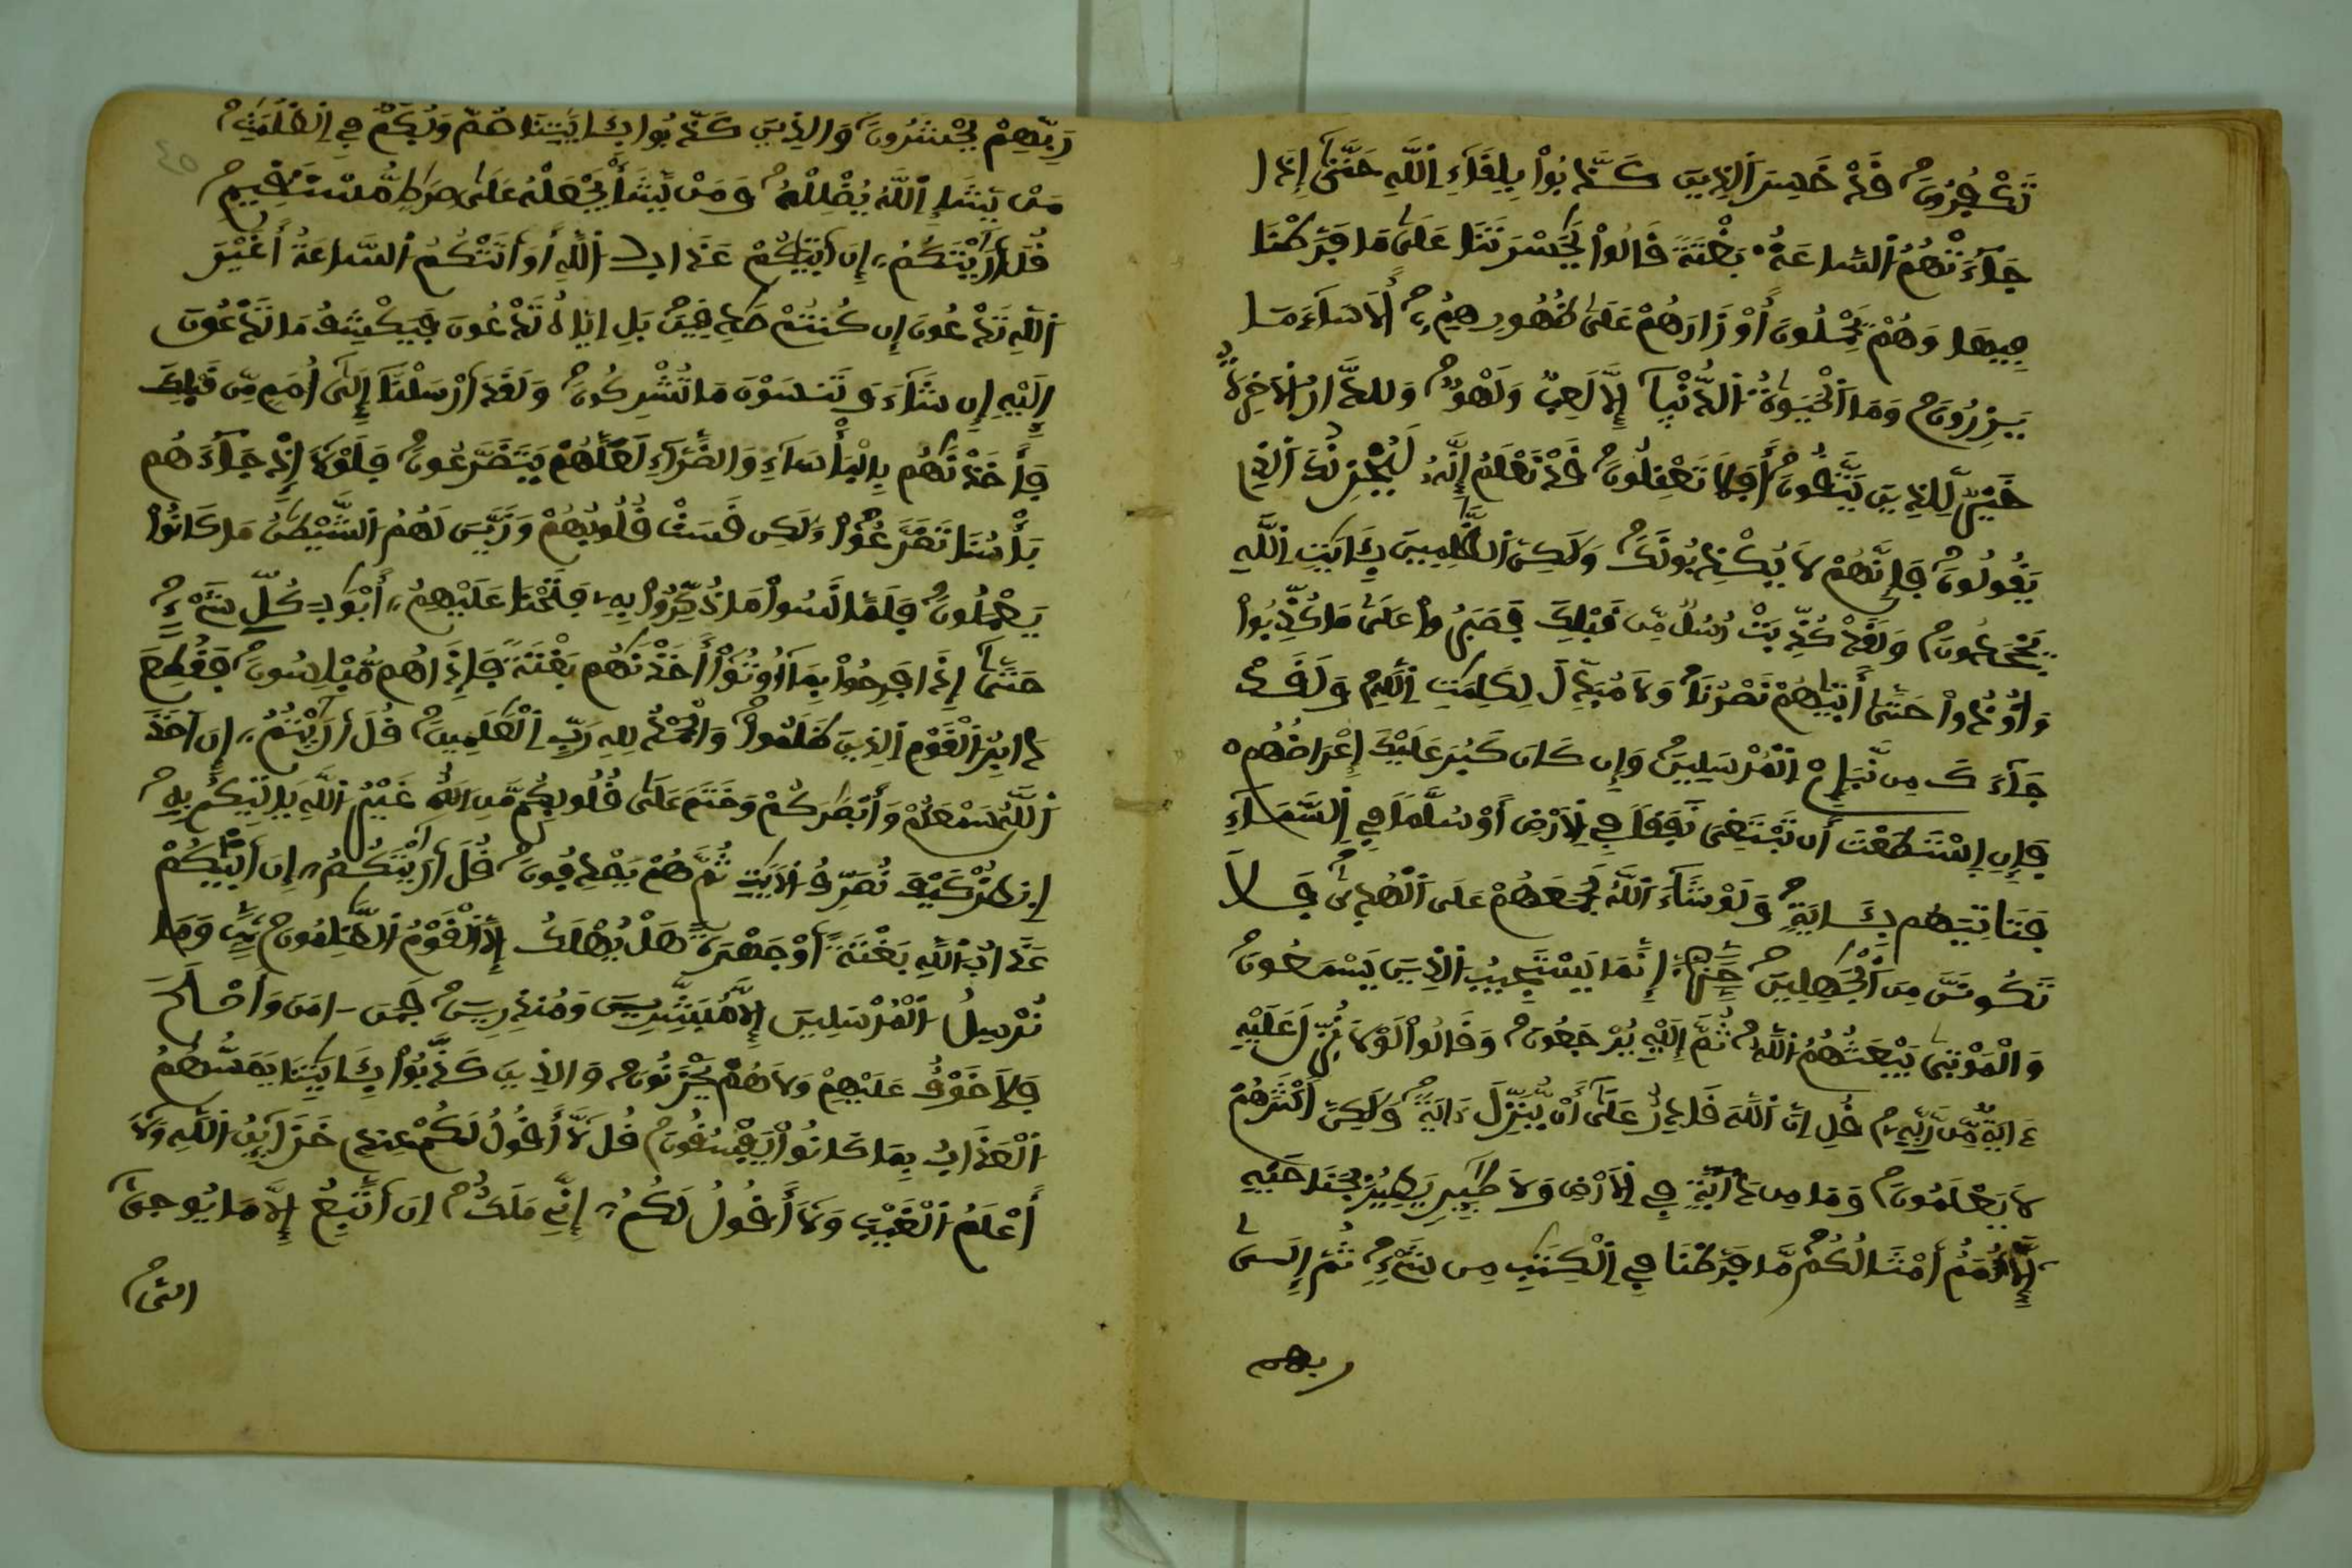 تَكْفُرُونَ قَدْ خَسِرَ ٱلذِينَ كَذَّبُوا۟ بِلِقَآءِ ٱللَّهِ حَتَّىٰٓ إِذَا
جَآءَتْهُمُ ٱلسَّاعَةُ بَغْتَةً قَالُوا۟ يَٰحَسْرَتَنَا عَلَىٰ مَا فَرَّطْنَا
فِيهَا وَهُمْ يَحْمِلُونَ أَوْزَارَهُمْ عَلَىٰ ظُهُورِهِمُۥٓ أَلَا سَآءَ مَا
يَزِرُونَ وَمَا ٱلْحَيَوٰةُ ٱلدُّنْيَآ إِلَّا لَعِبٌ وَلَهْوٌ وَلَلدَّارُ ٱلَاخِرَةُ
خَيْرٌ لِّلذِينَ يَتَّقُونَ أَفَلَا تَعْقِلُونَ قَدْ نَعْلَمُ إِنَّهُۥ لَيُحْزِنُكَ ٱلذِے
يَقُولُونَ فَإِنَّهُمْ لَا يُكْذِبُونَكَ وَلَٰكِنَّ ٱلظَّٰلِمِينَ بِـَٔايَٰتِ ٱللَّهِ
يَجْحَدُونَ وَلَقَدْ كُذِّبَتْ رُسُلٌ مِّن قَبْلِكَ فَصَبَرُوا۟ عَلَىٰ مَا كُذِّبُوا۟
وَأُوذُوا۟ حَتَّىٰٓ أَتَىٰهُمْ نَصْرُنَا وَلَا مُبَدِّلَ لِكَلِمَٰتِ ٱللَّهِ وَلَقَدْ
جَآءَكَ مِن نَّبَإِےْ ٱلْمُرْسَلِينَ وَإِن كَانَ كَبُرَ عَلَيْكَ إِعْرَاضُهُمْ
فَإِنِ ٱسْتَطَعْتَ أَن تَبْتَغِىَ نَفَقًا فِے ٱلَارْضِ أَوْ سُلَّمًا فِے ٱلسَّمَآءِ
فَتَاتِيَهُم بِـَٔايَةٍ وَلَوْ شَآءَ ٱللَّهُ لَجَمَعَهُمْ عَلَى ٱلْهُدَىٰ فَلَا
تَكُونَنَّ مِنَ ٱلْجَٰهِلِينَ إِنَّمَا يَسْتَجِيبُ ٱلذِينَ يَسْمَعُونَ
وَٱلْمَوْتَىٰ يَبْعَثُهُمُ ٱللَّهُ ثُمَّ إِلَيْهِ يُرْجَعُونَ وَقَالُوا۟ لَوْلَا نُزِّلَ عَلَيْهِ
ءَايَةٌ مِّن رَّبِّهِۦ قُلِ انَّ ٱللَّهَ قَادِرٌ عَلَىٰٓ أَنْ يُّنَزِّلَ ءَايَةً وَلَٰكِنَّ أَكْثَرَهُمْ
لَا يَعْلَمُونَ وَمَا مِن دَآبَّةٍ فِے ٱلَارْضِ وَلَا طَٰٓئِرٍ يَطِيرُ بِجَنَاحَيْهِ
إِلَّآ أُمَمٌ أَمْثَالُكُم مَّا فَرَّطْنَا فِے ٱلْكِتَٰبِ مِن شَىْءٍ ثُمَّ إِلَىٰ
ربهم
رَبِّهِمْ يُحْشَرُونَ وَالذِينَ كَذَّبُوا بِـَٔايَٰتِنَا صُمٌّ وَبُكْمٌ فِے ٱلظُّلُمَٰتِ
مَنْ يَّشَإِ ٱللَّهُ يُضْلِلْهُ وَمَنْ يَّشَأْ يَجْعَلْهُ عَلَىٰ صِرَٰطٍ مُّسْتَقِيمٍ
قُلَ اَرَٰيْتَكُمُۥٓ إِنَ اَتَىٰكُمْ عَذَابُ ٱللَّهِ أَوَ اَتَتْكُمُ ٱلسَّاعَةُ أَغَيْرَ
ٱللَّهِ تَدْعُونَ إِن كُنتُمْ صَٰدِقِينَ بَلِ ايَّاهُ تَدْعُونَ فَيَكْشِفُ مَا تَدْعُونَ
إِلَيْهِ إِن شَآءَ وَتَنسَوْنَ مَا تُشْرِكُونَ وَلَقَدَ اَرْسَلْنَآ إِلَىٰٓ أُمَمٍ مِّن قَبْلِكَ
فَأَخَذْنَٰهُم بِالْبَأْسَآءِ وَالضَّرَّآءِ لَعَلَّهُمْ يَتَضَرَّعُونَ فَلَوْلَآ إِذْ جَآءَهُم
بَأْسُنَا تَضَرَّعُوا۟ وَلَٰكِن قَسَتْ قُلُوبُهُمْ وَزَيَّنَ لَهُمُ ٱلشَّيْطَٰنُ مَا كَانُوا۟
يَعْمَلُونَ فَلَمَّا نَسُوا۟ مَا ذُكِّرُوا۟ بِهِۦ فَتَحْنَا عَلَيْهِمُۥٓ أَبْوَٰبَ كُلِّ شَىْءٍ
حَتَّىٰٓ إِذَا فَرِحُوا۟ بِمَآ أُوتُوٓا۟ أَخَذْنَٰهُم بَغْتَةً فَإِذَا هُم مُّبْلِسُونَ فَقُطِعَ
دَابِرُ ٱلْقَوْمِ ٱلذِينَ ظَلَمُوا۟ وَالْحَمْدُ لِلهِ رَبِّ ٱلْعَٰلَمِينَ قُلَ اَرَٰيْتُمُۥٓ إِنَ اَخَذَ
ٱللَّهُ سَمْعَكُمْ وَأَبْصَٰرَكُمْ وَخَتَمَ عَلَىٰ قُلُوبِكُم مَّنِ الَٰهٌ غَيْرُ ٱللَّهِ يَاتِيكُم بِهِ
ٱنظُرْ كَيْفَ نُصَرِّفُ ٱلَايَٰتِ ثُمَّ هُمْ يَصْدِفُونَ قُلَ اَرَٰيْتَكُمُۥٓ إِنَ اَتَىٰكُمْ
عَذَابُ ٱللَّهِ بَغْتَةً أَوْ جَهْرَةً هَلْ يُهْلَكُ إِلَّا ٱلْقَوْمُ ٱلظَّٰلِمُونَ وَمَا
نُرْسِلُ ٱلْمُرْسَلِينَ إِلَّا مُبَشِّرِينَ وَمُنذِرِينَ فَمَنَ اٰمَنَ وَأَصْلَحَ
فَلَا خَوْفٌ عَلَيْهِمْ وَلَا هُمْ يَحْزَنُونَ وَالذِينَ كَذَّبُوا۟ بِـَٔايَٰتِنَا يَمَسُّهُمُ
ٱلْعَذَابُ بِمَا كَانُوا۟ يَفْسُقُونَ قُل لَّآ أَقُولُ لَكُمْ عِندِے خَزَآئِنُ ٱللَّهِ وَلَآ
أَعْلَمُ ٱلْغَيْبَ وَلَآ أَقُولُ لَكُمُۥٓ إِنِّے مَلَكٌ إِنَ اَتَّبِعُ إِلَّا مَا يُوحَىٰٓ
إلى